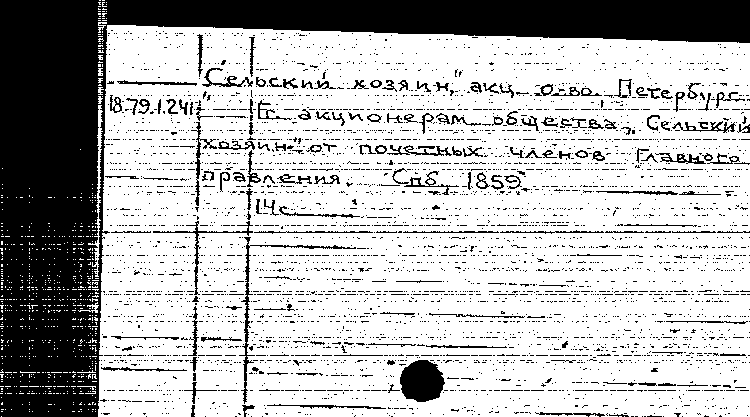 "Сельский хозяин," акц. о-во, Петербург.
18.79.1.241 Гг. акционерам общества „Сельский
хозяин" от почетных членов Главного
правления. Спб, 1859.
14с.